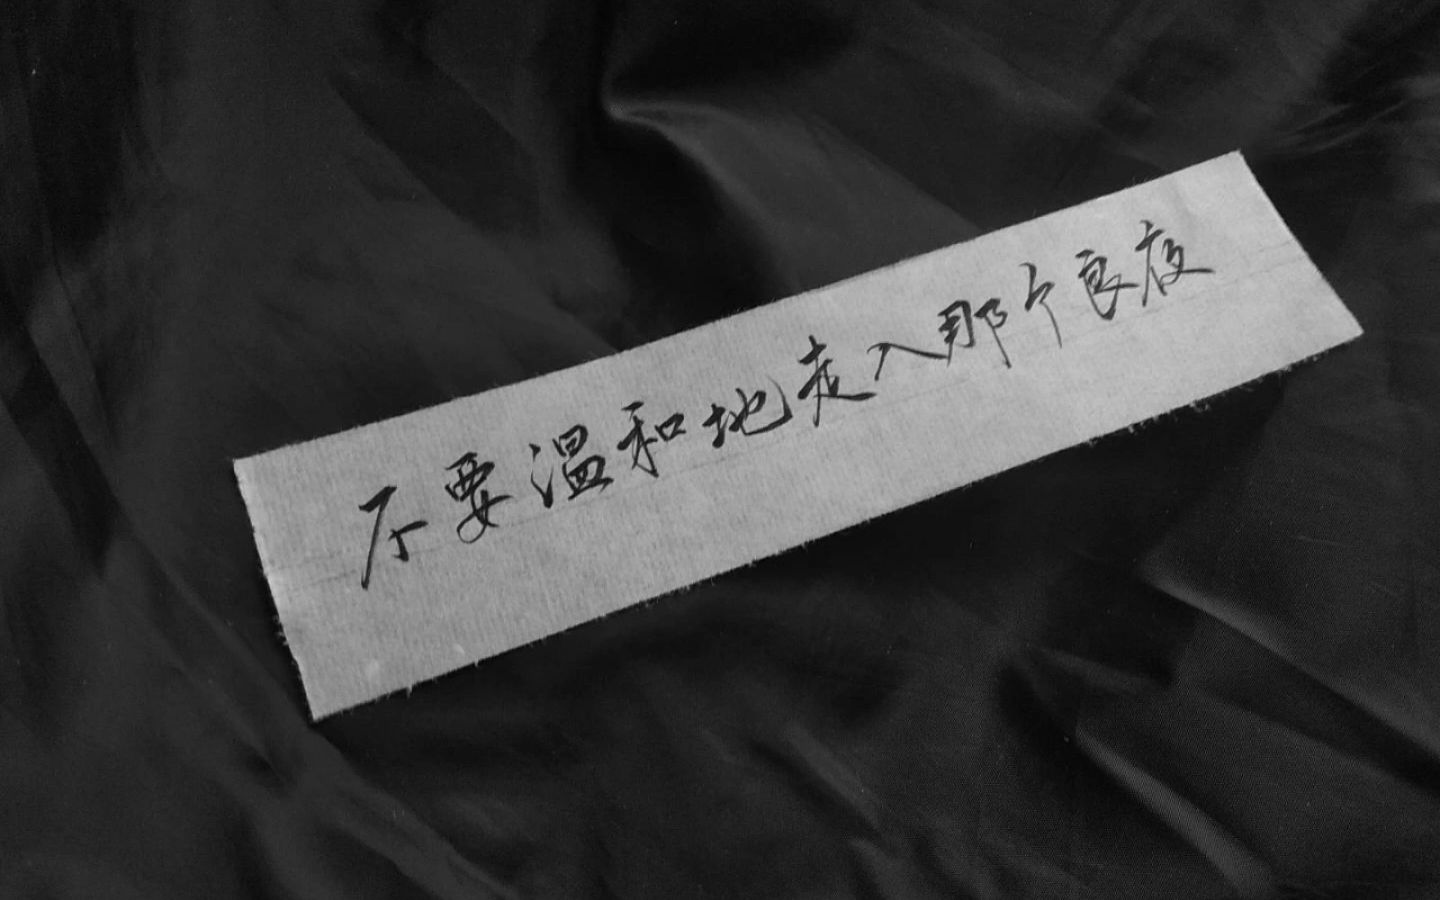 不要温和地走入那个良夜